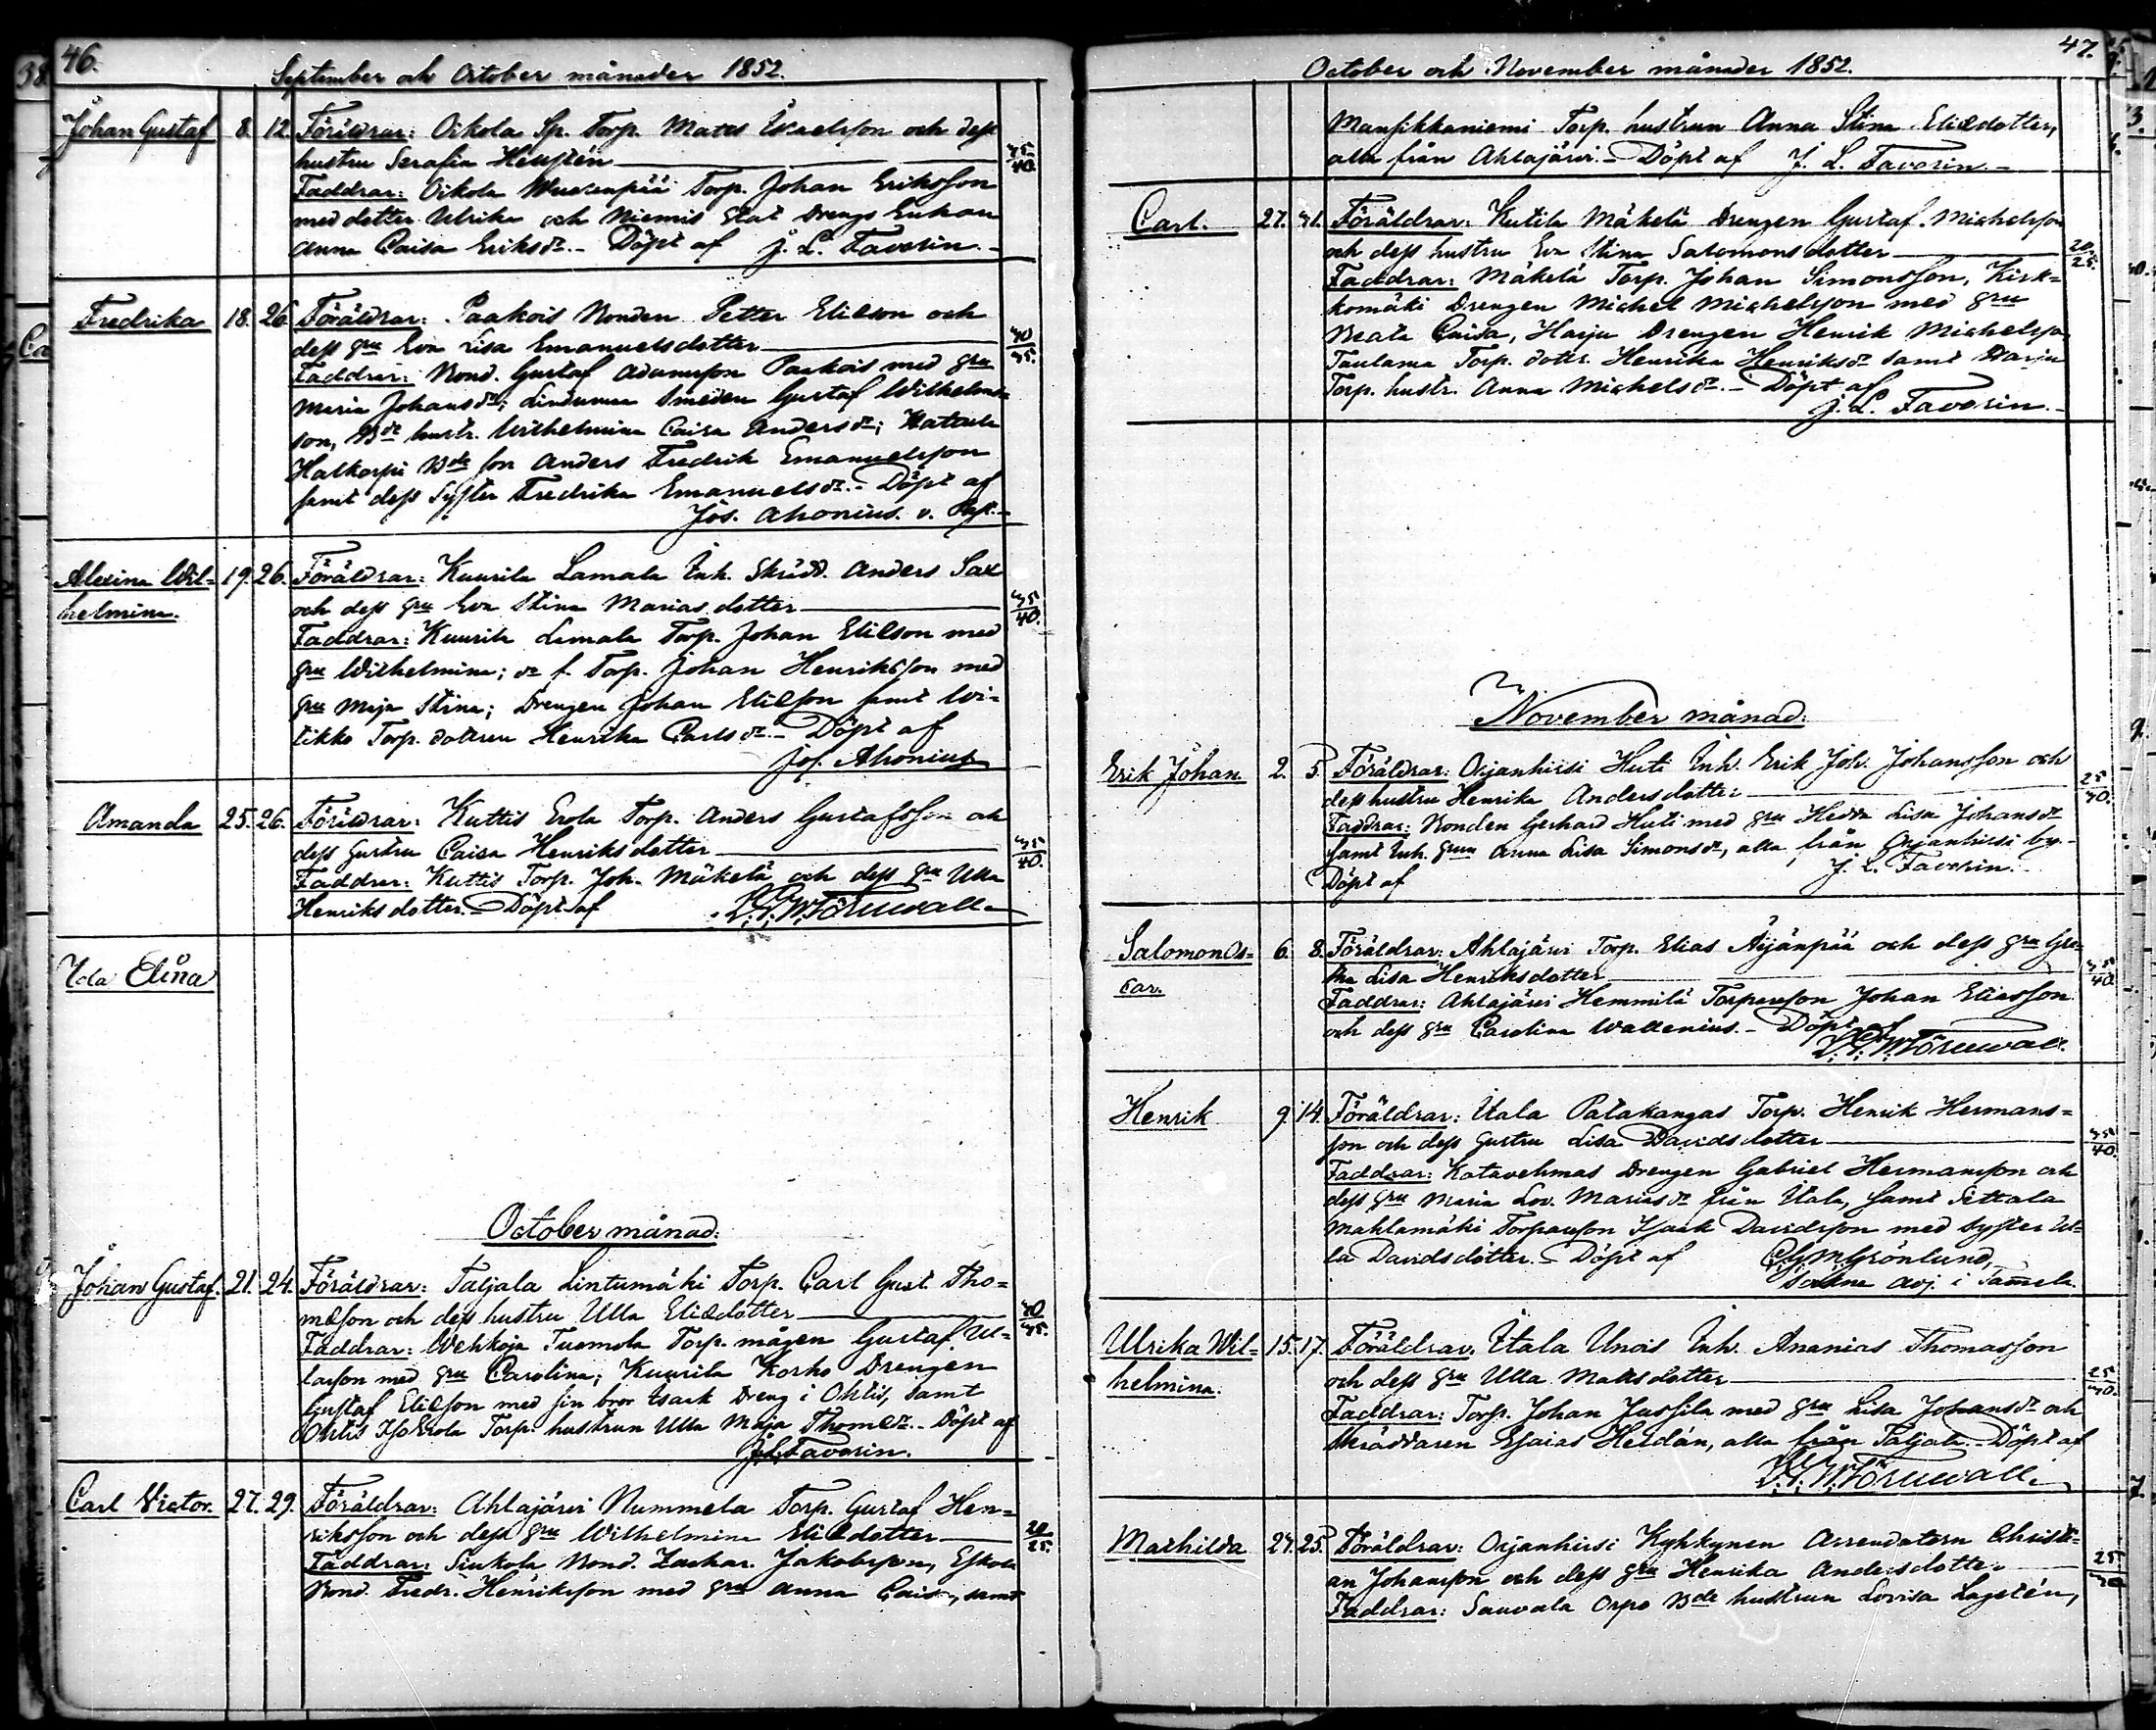 46.
September och October månader 1852.
Johan Gustaf 8. 12. Föräldrar: Oikola Sp. Torp. Matts Israelsson och dess
hustru Serafia 35/40.
Faddrar: Oikola Torp. Johan Eriksson
med dotter Ulrika och Niemis Stat Drengs Enkan
Anna Caisa Eriksdr. - Döpt af J. L. Favorin. -
Fredrika 18. 26. Föräldrar: Paakois Bonden Petter Eliesson och
dess hru Eva Lisa Emanuelsdotter 30/35.
Faddrar: Bond. Gustaf Adamsson Paakois med hru
Maria Johansdr; Smeden Gustaf Wilhelms=
son, Bde hustr. Wilhelmina Caisa Andersdr;
Bde son Anders Fredrik Emanuelsson
samt dess Syster Fredrika Emanuelsdr. - Döpt af
Jos. Ahonius. v. Past. -
Alexina Wil= 19. 26. Föräldrar: Kuurila Lamala Inh. Skrädd. Anders Sax
helmina. och dess hru Eva Stina Mariasdotter 35/40.
Faddrar: Kuurila Lamala Torp. Johan Eliesson med
hru Wilhelmina; dr f. Torp. Johan Henriksson med
hru Maja Stina; Drengen Johan Eliesson samt Wi=
tikko Torp. dottren Henrika Carlsdr. - Döpt af
Jos. Ahonius
Amanda 25. 26. Föräldrar: Kuttis Erola Torp. Anders Gustafsson och
dess hustru Caisa Henriksdotter 35/40.
Faddrar: Kuttis Torp. Joh. Mäkelä och dess hru Ulla
Henriksdotter. - Döpt af W. Törnwall.
Ida Elina
October månad.
Johan Gustaf. 21. 24. Föräldrar: Taljala Lintumäki Torp. Carl Gust. Tho=
masson och dess hustru Ulla Eliedotter 30/35.
Faddrar: Wehkoja Tuomola Torp. mågen Gustaf Ul=
larsson med hru Carolina; Kuurila Korho Drengen
Gustaf Eliesson med sin bror Isaak Dreng i Ohtis, samt
Ohtis Torp. hustrun Ulla Maja Thomedr. - Döpt af
J. L. Favorin.
Carl Victor. 27. 29. Föräldrar: Ahlajärvi Nummela Torp. Gustaf Hen=
riksson och dess hru Wilhelmina Eliedotter 20/25.
Faddrar: Siukola Bond. Zachar. Jakobsson, Eskola
Bond. Fredr. Henriksson med hru Anna Caisa, samt
47.
October och November månader 1852.
Mansikkaniemi Torp. hustrun Anna Stina Eliedotter,
alla från Ahlajärvi. - Döpt af J. L. Favorin. -
Carl. 27. 31. Föräldrar: Kutila Mäkelä Drengen Gustaf Michelsson
och dess hustru Eva Stina Salomonsdotter 20/25.
Faddrar: Mäkelä Torp. Johan Simonsson, Kirk=
komäki Drengen Michel Michelsson med hru
Beata Caisa, Harju Drengen Henrik Michelsson,
Taulama Torp. dottr. Henrika Henriksdr samt Harju
Torp. hustr. Anna Michelsdr. - Döpt af
J. L. Favorin. -
November månad.
Erik Johan 2. 5. Föräldrar: Orjanhirsi Huti Inh. Erik Joh. Johansson och
dess hustru Henrika Andersdotter 25/30.
Faddrar: Bonden Gerhard Huti med hru Hedda Lisa Johansdr
samt Inh. hrun Anna Lisa Simonsdr, alla från Orjanhirsi by. -
Döpt af J. L. Favorin. -
Salomon Os= 6. 8. Föräldrar: Ahlajärvi Torp. Elias Äijänpää och dess hru Gre=
car. tha Lisa Henriksdotter 35/40.
Faddrar: Ahlajärvi Hemmilä Torpareson Johan Eliasson
och dess hru Carolina Wallenius. - Döpt af
W. Törnwall.
Henrik 9. 14. Föräldrar: Itala Patakangas Torp. Henrik Hermans=
son och dess hustru Lisa Davidsdotter 35/40.
Faddrar: Katavehmas Drengen Gabriel Hermansson och
dess hru Maria Lov. Mariasdr från Itala, samt
Mahlamäki Torpareson Isaak Davidsson med syster Ul=
la Davidsdotter. - Döpt af Grönlund,
Sockne Adj. i Tammela
Ulrika Wil= 15. 17. Föräldrar. Itala Unois Inh. Ananias Thomasson
helmina. och dess hru Ulla Mattsdotter 25/30.
Faddrar: Torp. Johan Jussila med hru Lisa Johansdr och
Skräddaren Esaias Heldán, alla från Taljala. - Döpt af
W. Törnwall.
Mathilda 24. 25. Föräldrar: Orjanhirsi Kyhkynen Arrendatorn Christi=
an Johansson och dess hru Henrika Andersdotter 25/30
Faddrar: Sauvala Orpo Bde hustrun Lovisa Lagstén,